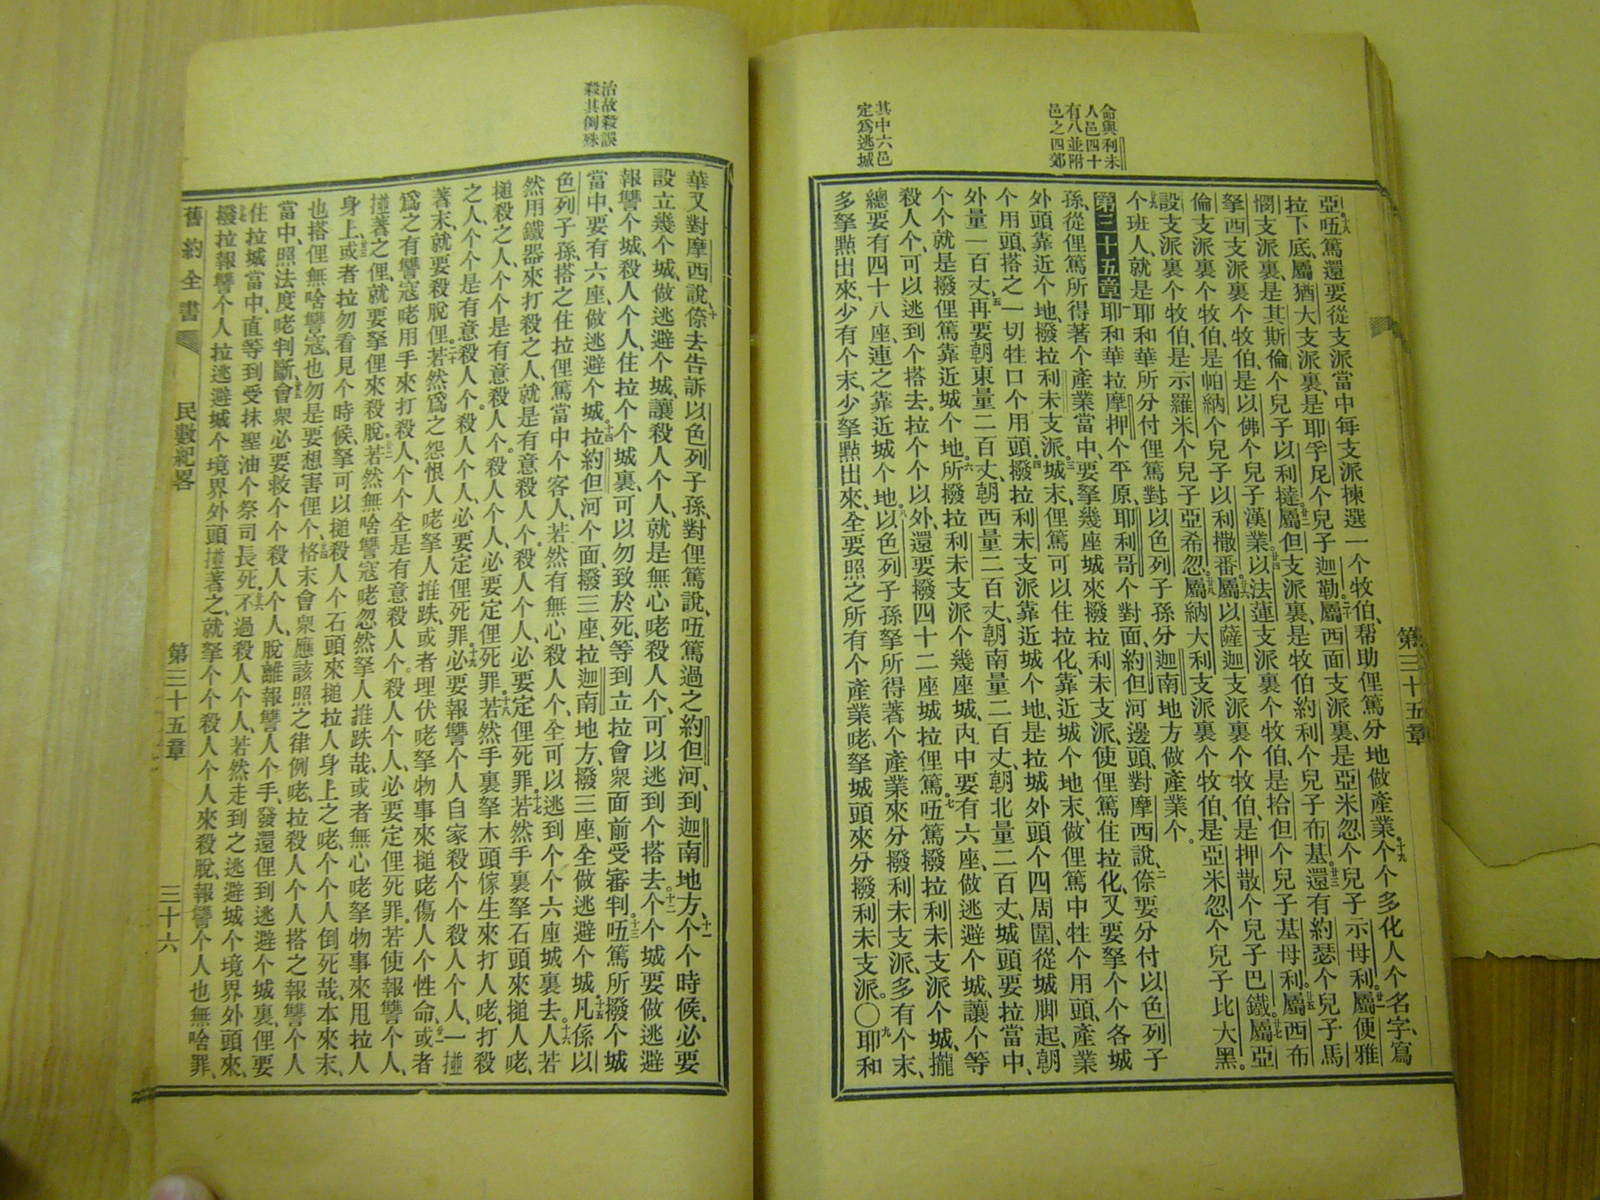 命與利未
人邑四十
有八並附
邑之四郊
其中六邑
定爲逃城
第三十五章
亞、伍篤還要從支派當中每支派揀選一个牧伯、帮助俚篤分地做產業。十九个个多化人个名字、寫
拉下底、屬猶大支派裏、是耶孚尼个兒子迦勒、二十屬西面支派裏、是亞米忽个兒子示母利、廿一屬便雅
憫支派裏、是其斯倫个兒子以利撻、廿二屬但支派裏、是牧伯約利个兒子布基、廿三還有約瑟个兒子馬
拏西支派裏个牧伯、是以佛个兒子漢業、廿四以法蓮支派裏个牧伯、是拾但个兒子基母利、廿五屬西布
倫支派裏个牧伯、是帕納个兒子以利撒番、廿六屬以薩迦支派裏个牧伯、是押散个兒子巴鐵、廿七屬亞
設支派裏个牧伯、是示羅米个兒子亞希忽、廿八屬納大利支派裏个牧伯、是亞米忽个兒子比大黑。
廿九个班人、就是耶和華所分付俚篤對以色列子孫分迦南地方做產業个。
第三十五章 一耶和華拉摩押个平原、耶利哥个對面、約但河邊頭、對摩西說、二倷要分付以色列子
孫、從俚篤所得著个產業當中、要拏幾座城來撥拉利未支派、使俚篤住拉化、又要拏个个各城
外頭靠近个地、撥拉利未支派、三城末、俚篤可以住拉化、靠近城个地末、做俚篤中牲个用頭、產業
个用頭、搭之一切牲口个用頭、四撥拉利未支派靠近城个地、是拉城外頭个四周圍、從城脚起、朝
外量一百丈、五再要朝東量二百丈、朝西量二百丈、朝南量二百丈、朝北量二百丈、城頭要拉當中、
个个就是撥俚篤靠近城个地。六所撥拉利未支派个幾座城、內中要有六座、做逃避个城、讓个等
殺人个、可以逃到个搭去、拉个个以外、還要撥四十二座城拉俚篤、七伍篤撥拉利未支派个城、攏
總要有四十八座、連之靠近城个地。八以色列子孫拏所得著个產業來分撥利未支派、多有个末、
多拏點出來、少有个末、少拏點出來、全要照之所有个產業咾、拏城頭來分撥利未支派。〇九耶和
治故殺誤
殺其例殊
華又對摩西說、十倷去告訴以色列子孫、對俚篤說、伍篤過之約但河、到迦南地方、十一个个時候、必要
設立幾个城、做逃避个城、讓殺人个人、就是無心咾殺人个、可以逃到个搭去、十二个个城要做逃避
報讐个城、殺人个人、住拉个个城裏、可以勿致於死、等到立拉會衆面前受審判。十三伍篤所撥个城
當中、要有六座、做逃避个城、十四拉約但河个面、撥三座、拉迦南地方、撥三座、全做逃避个城、十五凡係以
色列子孫、搭之住拉俚篤當中个客人、若然有無心殺人个、全可以逃到个个六座城裏去。十六人若
然用鐵器來打殺之人、就是有意殺人个、殺人个人、必要定俚死罪。十七若然手裏拏石頭來搥人咾、
搥殺之人、个个是有意殺人个、殺人个人、必要定俚死罪。十八若然手裏拏木頭傢生來打人咾、打殺
之人、个个是有意殺人个、殺人个人、必要定俚死罪。十九必要報讐个人自家殺个个殺人个人、一撞
著末、就要殺脫俚。二十若然爲之怨恨人咾拏人推跌、或者埋伏咾拏物事來搥咾傷人个性命、廿一或者
爲之有讐寇咾用手來打殺人、个个全是有意殺人个、殺人个人、必要定俚死罪。若使報讐个人、
撞著之俚、就要拏俚來殺脫。廿二若然無啥讐寇咾忽然拏人推跌哉、或者無心咾拏物事來甩拉人
身上、廿三或者拉勿看見个時候、拏可以搥殺人个石頭來搥拉人身上之咾、个个人倒死哉、本來末、
也搭俚無啥讐寇、也勿是要想害俚个、廿四格末會衆應該照之律例咾、拉殺人个人搭之報讐个人
當中、照法度咾判斷、廿五會衆必要救个个殺人个人、脫離報讐人个手、發還俚到逃避个城裏、俚要
住拉城當中、直等到受抹聖油个祭司長死。廿六不過殺人个人、若然走到之逃避城个境界外頭來、
廿七撥拉報讐个人、拉逃避城个境界外頭、撞著之、就拏个个殺人个人來殺脫、報讐个人也無啥罪、
舊約全書 民數紀畧 第三十五章 三十六